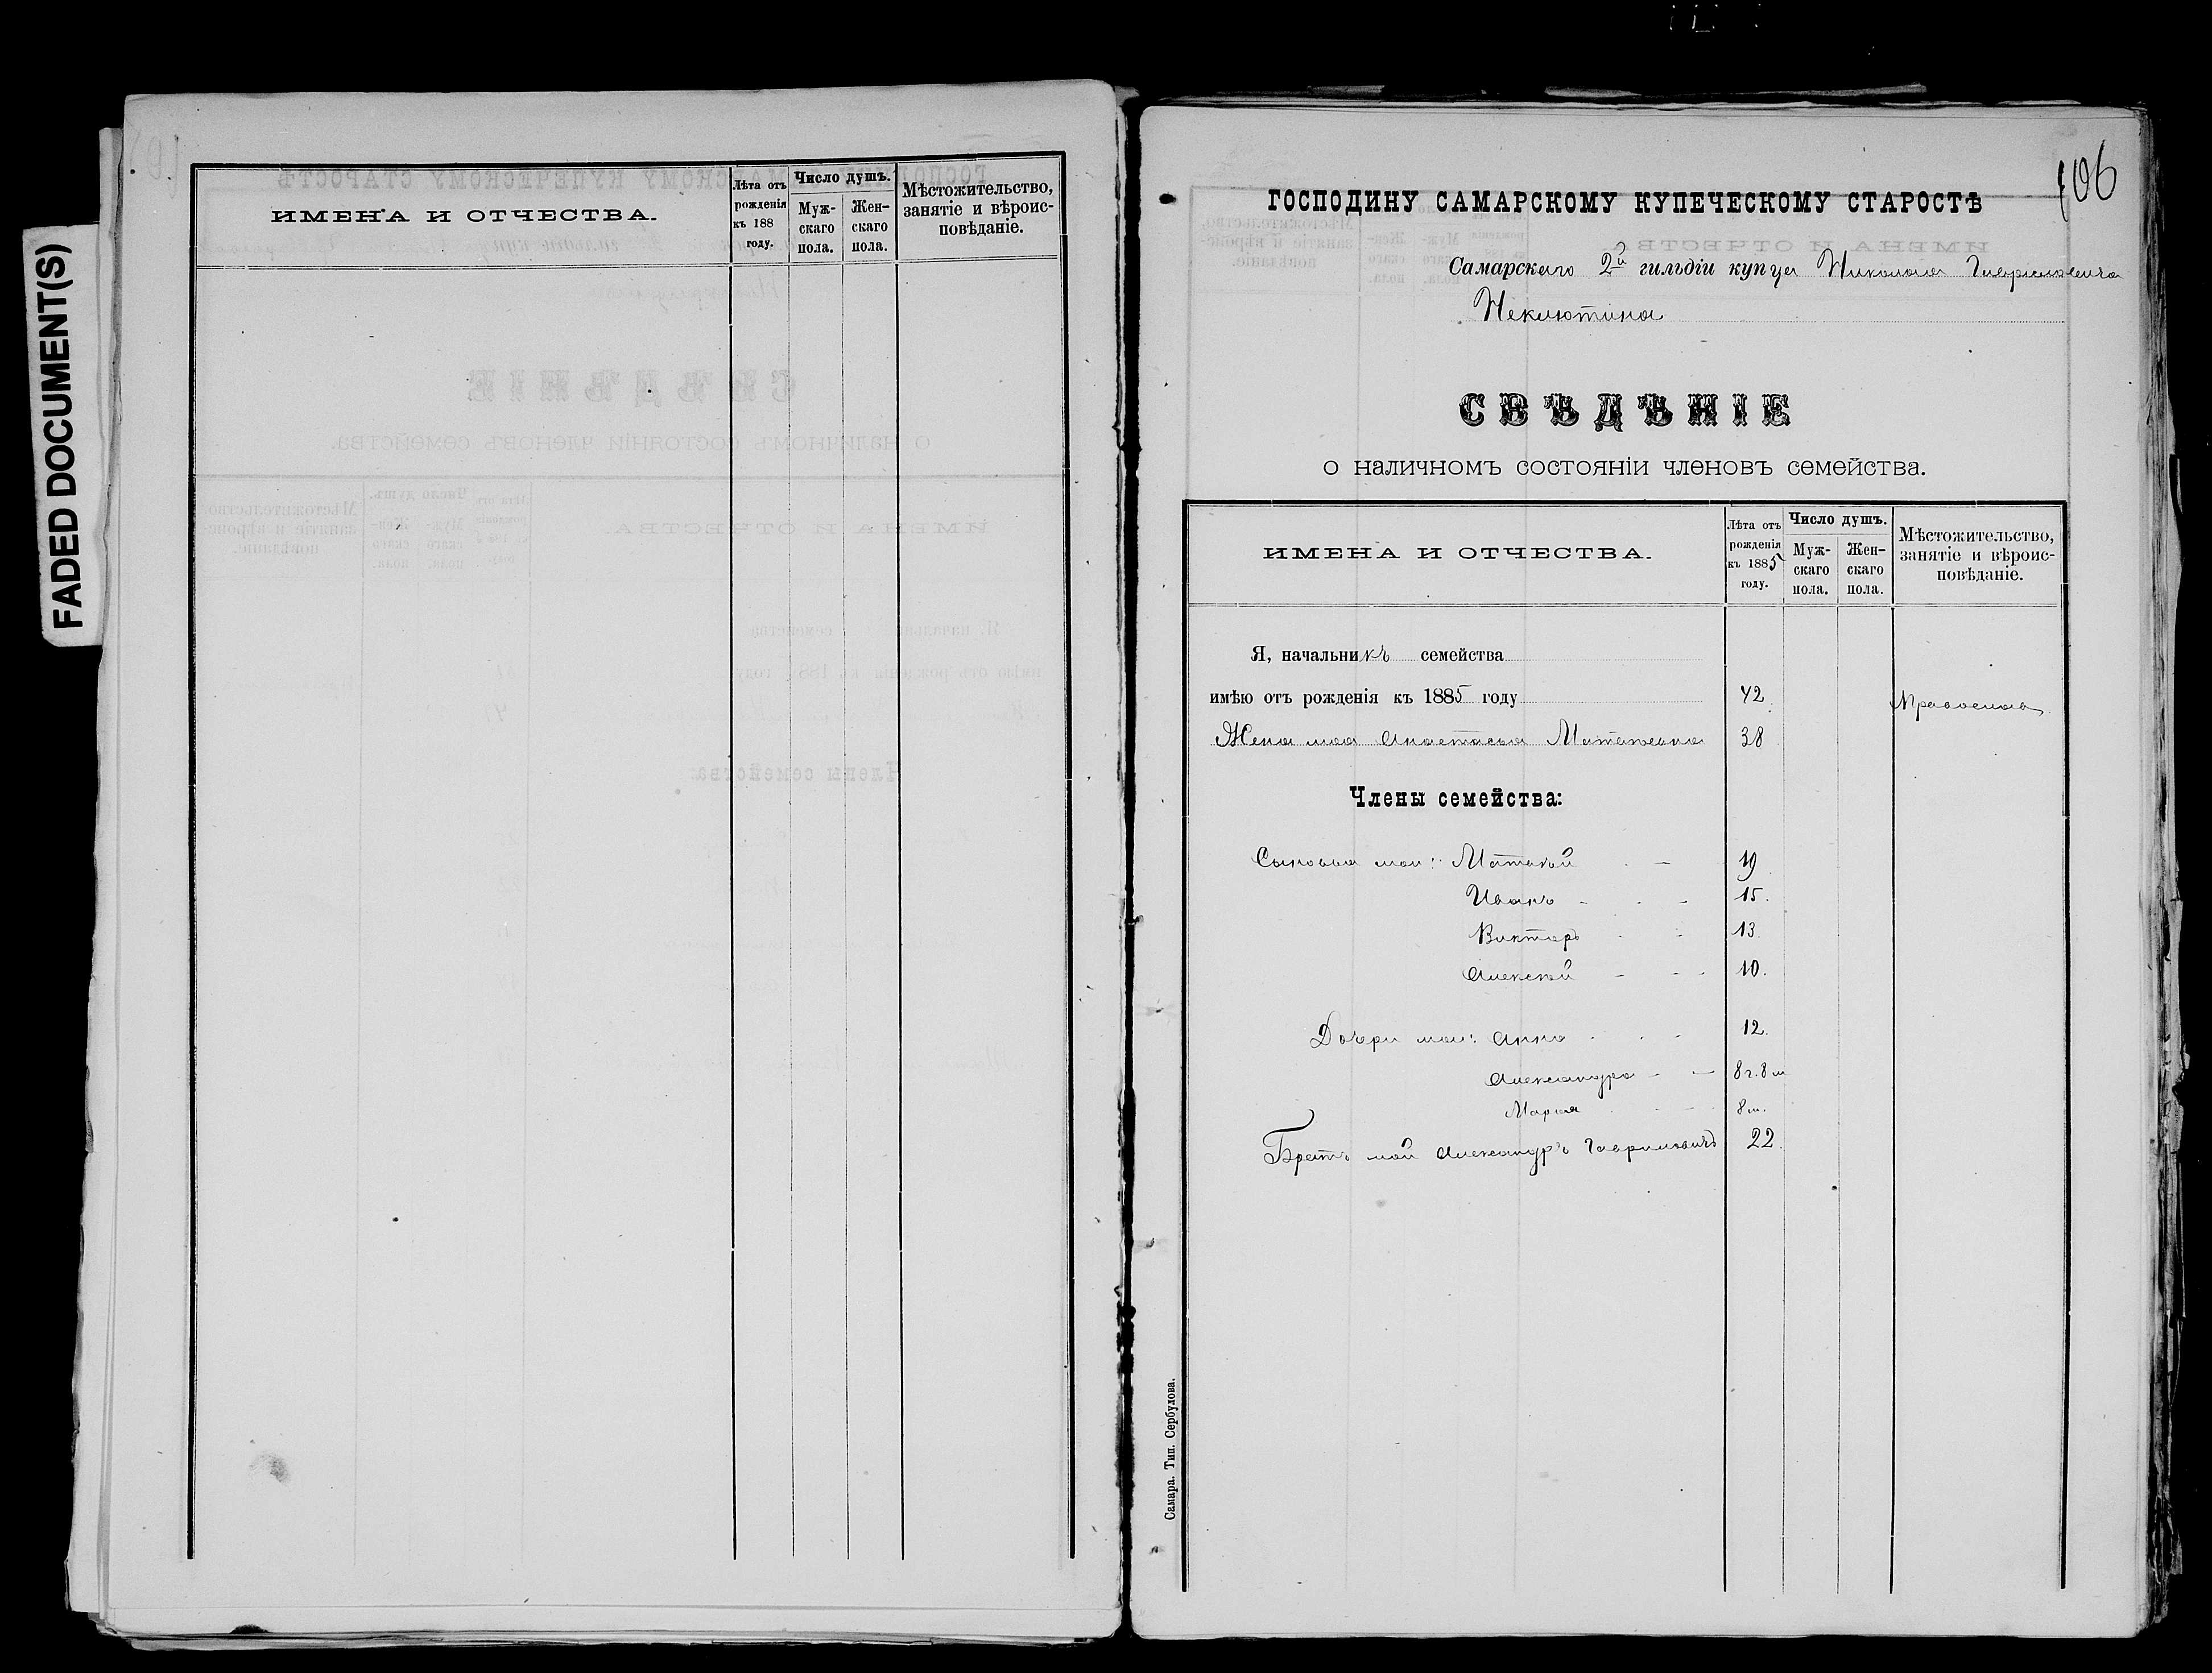 FADED DOCUMENT(S)
ИМЕНА И ОТЧЕСТВА.
Лѣта отъ рожденія къ 188 году.
Число душъ.
Мужскаго пола.
Женскаго пола.
Мѣстожительство, занятіе и вѣроисповѣданіе.
106
ГОСПОДИНУ САМАРСКОМУ КУПЕЧЕСКОМУ СТАРОСТѢ
Самарскаго 2й гильдіи купца Николая Гавриловича
Неклютина
СВѢДѢНІЕ
о наличномъ состояніи членовъ семейства.
ИМЕНА И ОТЧЕСТВА.
Лѣта отъ рожденія къ 1885 году.
Число душъ.
Мужскаго пола.
Женскаго пола.
Мѣстожительство, занятіе и вѣроисповѣданіе.
Я, начальникъ семейства
имѣю отъ рожденія къ 1885 году 42 Православ
Жена моя Анастасья Матвѣевна 38
Члены семейства:
Сыновья мои: Матвѣй 19
Иванъ 15.
Викторъ 13.
Алексѣй 10.
Дочери мои: Анна 12.
Александра 8 г. 8 м
Марья 8 м.
Братъ мой Александръ Гавриловичъ 22.
Самара. Тип. Сербулова.